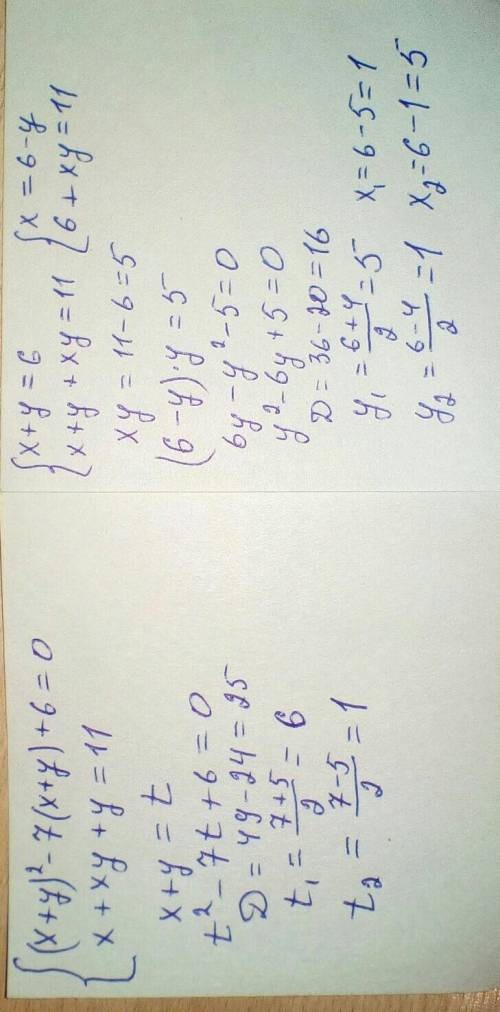 {(x+y)²-7(x+y)+6=0
x+xy+y=11
x+y=t
t²-7t+6=0
D=49-24=25
t₁=(7+5)/2=6
t₂=(7-5)/2=1
{x+y=6 {x=6-y
x+y+xy=11 6+xy=11
xy=11-6=5
(6-y)·y=5
6y-y²-5=0
y²-6y+5=0
D=36-20=16
y₁=(6+4)/2=5 x₁=6-5=1
y₂=(6-4)/2=1 x₂=6-1=5